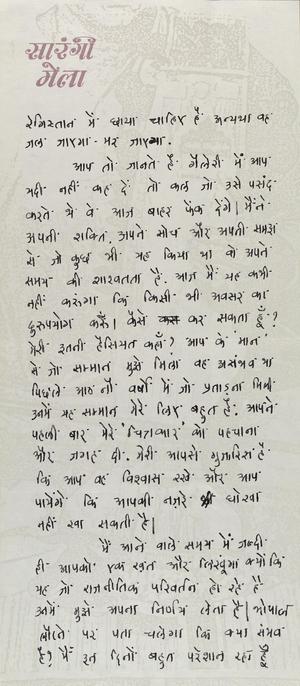 सारंगी
मेला
रेगिस्तान में छाया चाहिए है अन्यथा वह
जल जाएगा - मर जाएगा.
आप तो जानते हैं गैलेरी में आप
यदी नहीं कह दें तो कल जो उसे पसंद
करते थे वे आज बाहर फेंक देंगे। मैंने
अपनी शक्ति, अपने सोच और अपनी समझ
से जो कुछ भी यह किया था वो अपने
समय की शाश्वतता है. आज मैं यह कभी
नहीं करूंगा कि किसी भी अवसर का
दुरुपयोग करूँ। कैसे कर सकता हूँ?
मेरी इतनी हैसियत कहाँ? आप के मान
से जो सम्मान मुझे मिला वह असंभव था
पिछले आठ नौ वर्षों में जो प्रताड़ना मिली
उनमें यह सम्मान मेरे लिए बहुत है. आपने
पहली बार मेरे 'चित्रकार' को पहचाना
और जगह दी. मेरी आपसे गुज़ारिश है
कि आप वह विश्वास रखें और आप
पायेंगे कि आपकी नज़रें धोखा
नहीं खा सकती हैं।
मैं आने वाले समय में जल्दी
ही आपको एक ख़त और लिखूंगा क्योंकि
यह जो राजनीतिक परिवर्तन हो रहे हैं
उनमें मुझे अपना निर्णय लेना है। भोपाल
लौटने पर पता चलेगा कि क्या संभव
है? मैं इन दिनों बहुत परेशान रहा हूँ